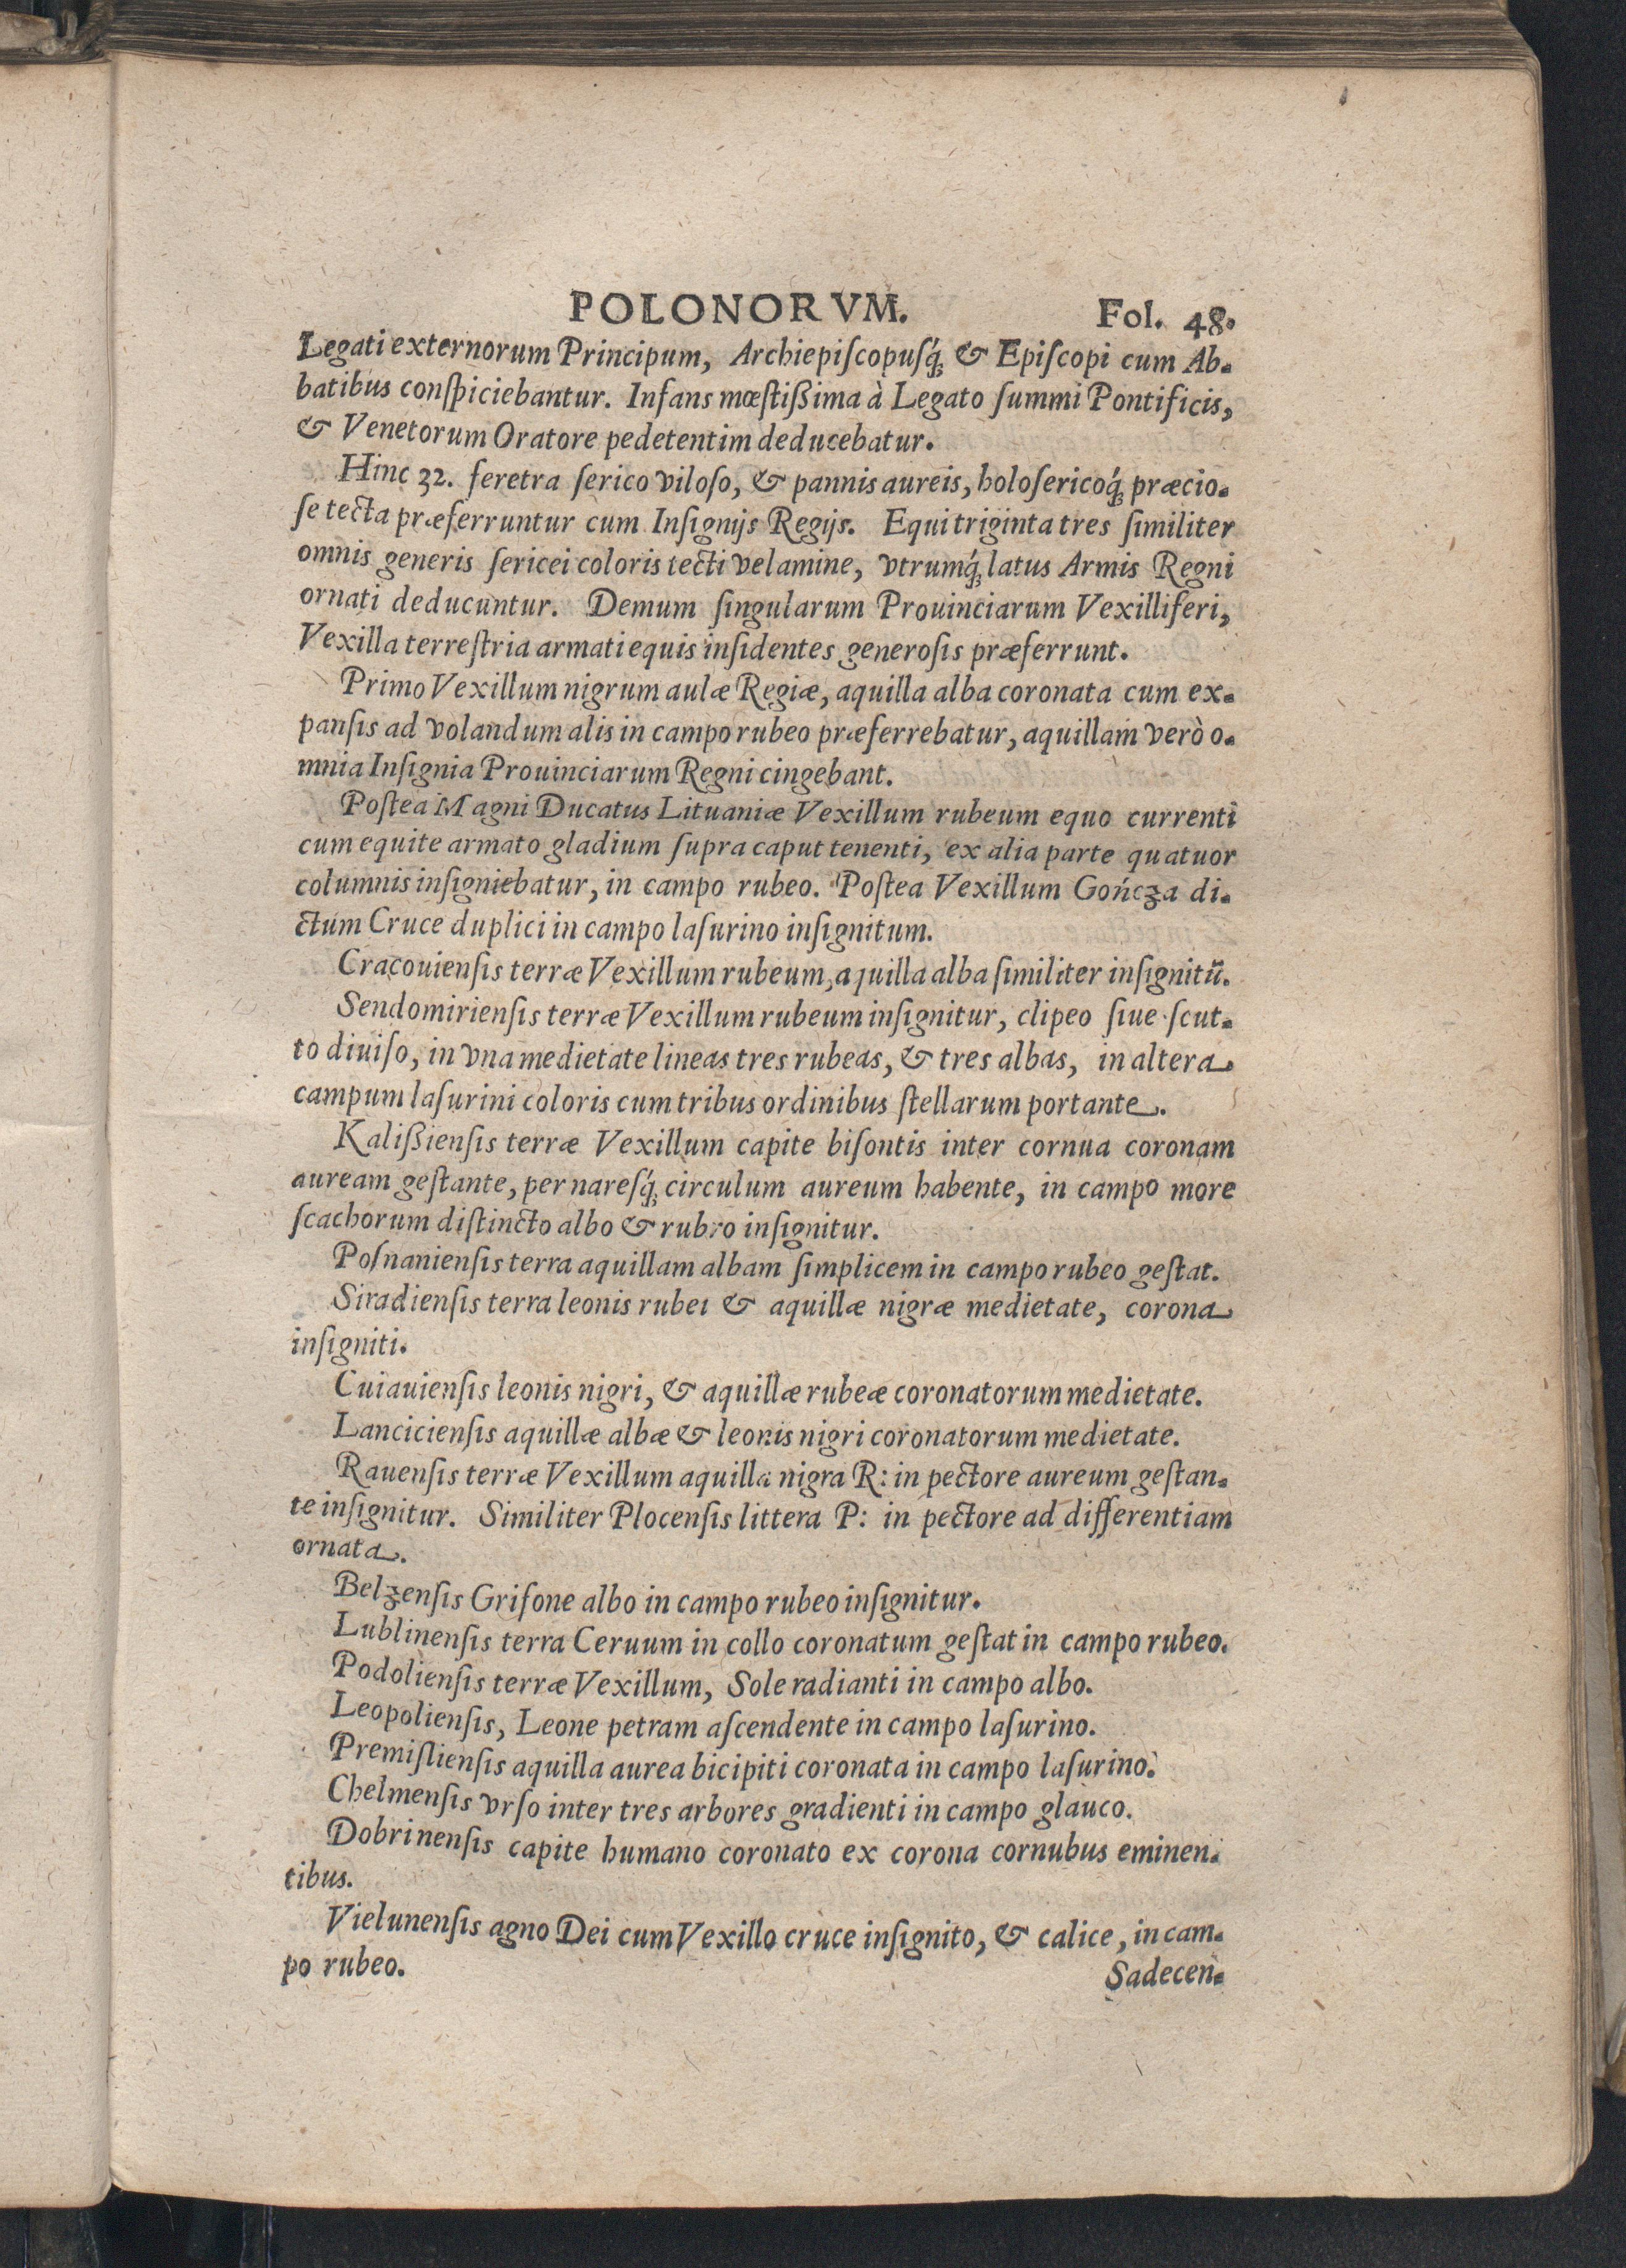 POLONORVM. Fol. 48.
Legati externorum Principum, Archiepiſcopuſq́; & Epiſcopi cum Ab-
batibus conſpiciebantur. Infans mœſtiſſima à Legato ſummi Pontificis,
& Venetorum Oratore pedetentim deducebatur.
Hinc 32. feretra ſerico viloſo, & pannis aureis, holoſericoq́; præcio-
ſe tecta præferruntur cum Inſignijs Regijs. Equi triginta tres ſimiliter
omnis generis ſericei coloris tecti velamine, vtrumq́; latus Armis Regni
ornati deducuntur. Demum ſingularum Prouinciarum Vexilliferi,
Vexilla terreſtria armati equis inſidentes generoſis præferrunt.
Primo Vexillum nigrum aulæ Regiæ, aquilla alba coronata cum ex-
panſis ad volandum alis in campo rubeo præferrebatur, aquillam verò o-
mnia Inſignia Prouinciarum Regni cingebant.
Poſtea Magni Ducatus Lituaniæ Vexillum rubeum equo currenti
cum equite armato gladium ſupra caput tenenti, ex alia parte quatuor
columnis inſigniebatur, in campo rubeo. Poſtea Vexillum Gończa di-
ctum Cruce duplici in campo laſurino inſignitum.
Cracouienſis terræ Vexillum rubeum, aquilla alba ſimiliter inſignitū.
Sendomirienſis terræ Vexillum rubeum inſignitur, clipeo ſiue ſcut-
to diuiſo, in vna medietate lineas tres rubeas, & tres albas, in altera
campum laſurini coloris cum tribus ordinibus ſtellarum portante.
Kaliſſienſis terræ Vexillum capite biſontis inter cornua coronam
auream geſtante, per nareſq́; circulum aureum habente, in campo more
ſcachorum diſtincto albo & rubro inſignitur.
Poſnanienſis terra aquillam albam ſimplicem in campo rubeo geſtat.
Siradienſis terra leonis rubei & aquillæ nigræ medietate, corona
inſigniti.
Cuiauienſis leonis nigri, & aquillæ rubeæ coronatorum medietate.
Lancicienſis aquillæ albæ & leonis nigri coronatorum medietate.
Rauenſis terræ Vexillum aquilla nigra R: in pectore aureum geſtan-
te inſignitur. Similiter Plocenſis littera P: in pectore ad differentiam
ornata.
Belzenſis Grifone albo in campo rubeo inſignitur.
Lublinenſis terra Ceruum in collo coronatum geſtat in campo rubeo.
Podolienſis terræ Vexillum, Sole radianti in campo albo.
Leopolienſis, Leone petram aſcendente in campo laſurino.
Premiſlienſis aquilla aurea bicipiti coronata in campo laſurino.
Chelmenſis vrſo inter tres arbores gradienti in campo glauco.
Dobrinenſis capite humano coronato ex corona cornubus eminen-
tibus.
Vielunenſis agno Dei cum Vexillo cruce inſignito, & calice, in cam-
po rubeo.
Sadecen-